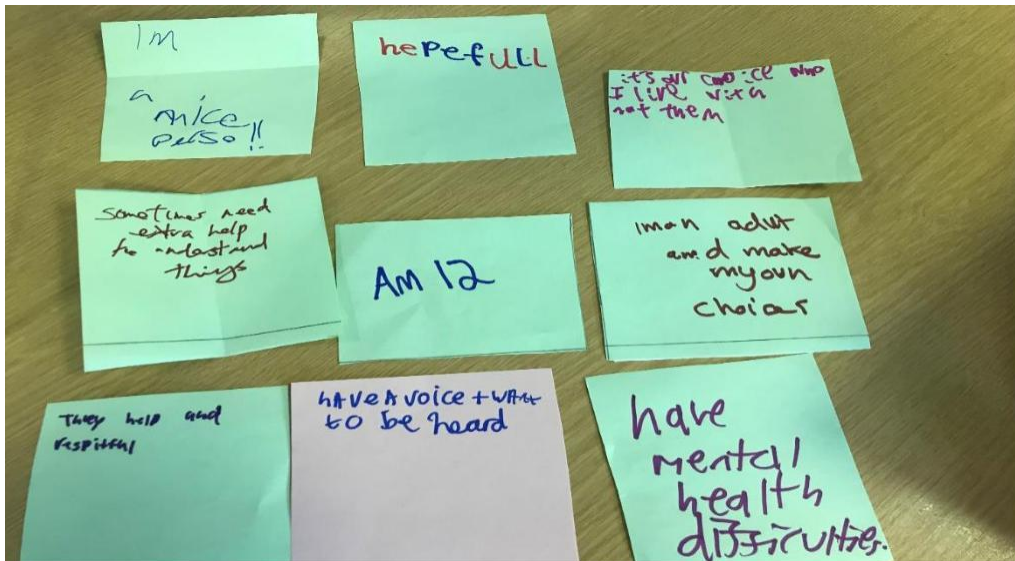 Im
a
nice
perso!!
hepefull
it's our choice who
I live with
not them
sometimes need
extra help
to understand
things
AM 12
iman adut
and make
myoun
choices
They help and
respitful
hAVe A voice + WAnt
to be heard
have
mental
health
difficulties.